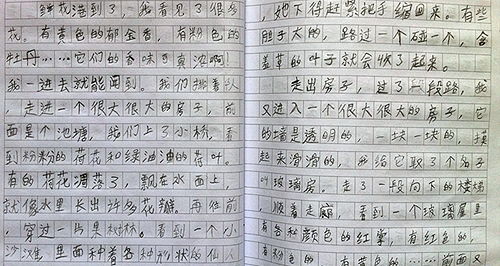 鲜花港到了，我看见了很多
花，有黄色的郁金香，有粉色的
牡丹……它们的香味可真浓啊！
我一进去就能闻到。我们排着队
，走进一个很大很大的房子，前
面是个池塘，我们上了小桥，看
到粉粉的荷花和绿油油的荷叶。
有的荷花凋落了，飘在水面上，
就像水里长出许多花瓣。再往前
，穿过一片果树林。看到一个小
沙滩，里面种着各种形状的仙人
，她下得赶紧把手缩回来。有些
胆子大的，路过一个碰一个，含
羞草的叶子就会收了起来。
走出房子，过了一段路，我
又进入一个很大很大的房子，它
的墙是透明的，一块一块的，摸
起来滑滑的，我给它取了个名子
叫玻璃房。走了一段向下的楼梯
，顺着走廊，看到一个玻璃屋里
有各种颜色的红掌，有红色的，
有粉色的，有黄色的……前面又